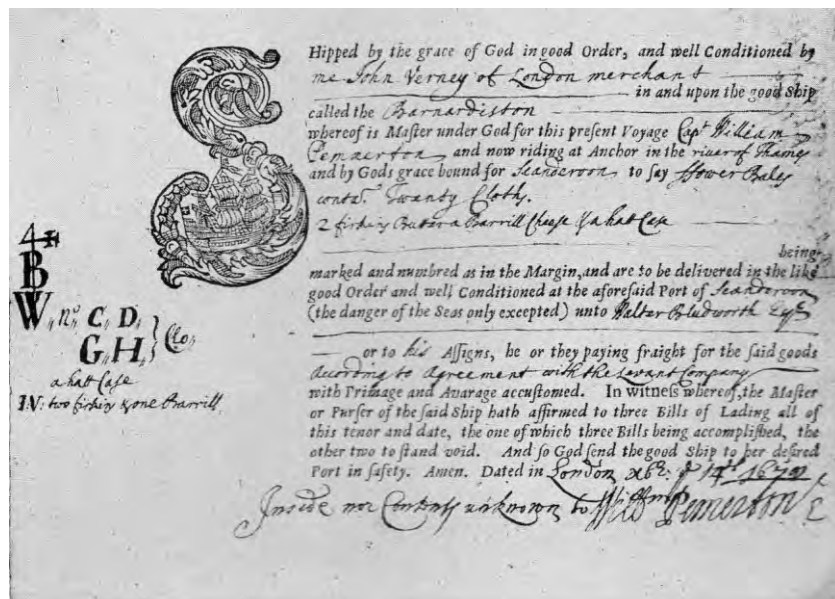 SHipped by the grace of God in good Order, and well Conditioned by
me John Verney of London merchant
in and upon the good Ship
called the Barnardiston
whereof is Master under God for this present Voyage Capt William
Pemerton and now riding at Anchor in the river of Thames
and by Gods grace bound for Scanderoon to say ffower Bales
conta. Twenty Cloths.
2 firkins Butter a Barrill Cheese & a hatt Case
being
marked and numbred as in the Margin, and are to be delivered in the like
good Order and well Conditioned at the aforesaid Port of Scanderoon
(the danger of the Seas only excepted) unto Walter Bludworth Esqr
or to his Assigns, he or they paying fraight for the said goods
According to Agreement with the Levant Company
with Primage and Avarage accustomed. In witness whereof, the Master
or Purser of the said Ship hath affirmed to three Bills of Lading all of
this tenor and date, the one of which three Bills being accomplished, the
other two to stand void. And so God send the good Ship to her desired
Port in safety. Amen. Dated in London
Inside nor Contents unknown to Will Pemerton
4
B
W no C, D, Clo
G H
a hatt Case
IV: two firkins & one Barrill